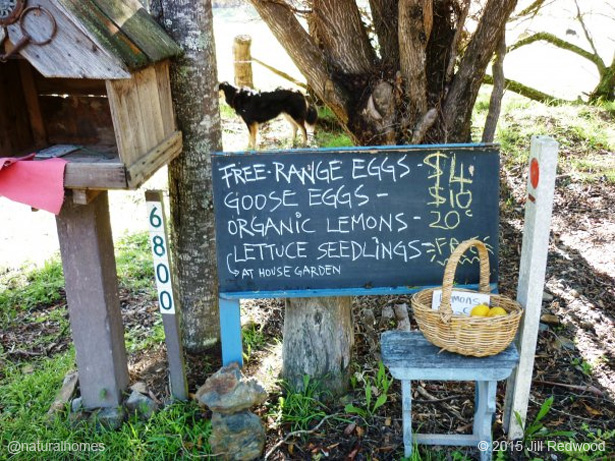 FREE-RANGE EGGS - $4
GOOSE EGGS - $10
ORGANIC LEMONS - 20¢
LETTUCE SEEDLINGS =
AT HOUSE GARDEN
6800
@naturalhomes
© 2015 ~ Jill Redwood